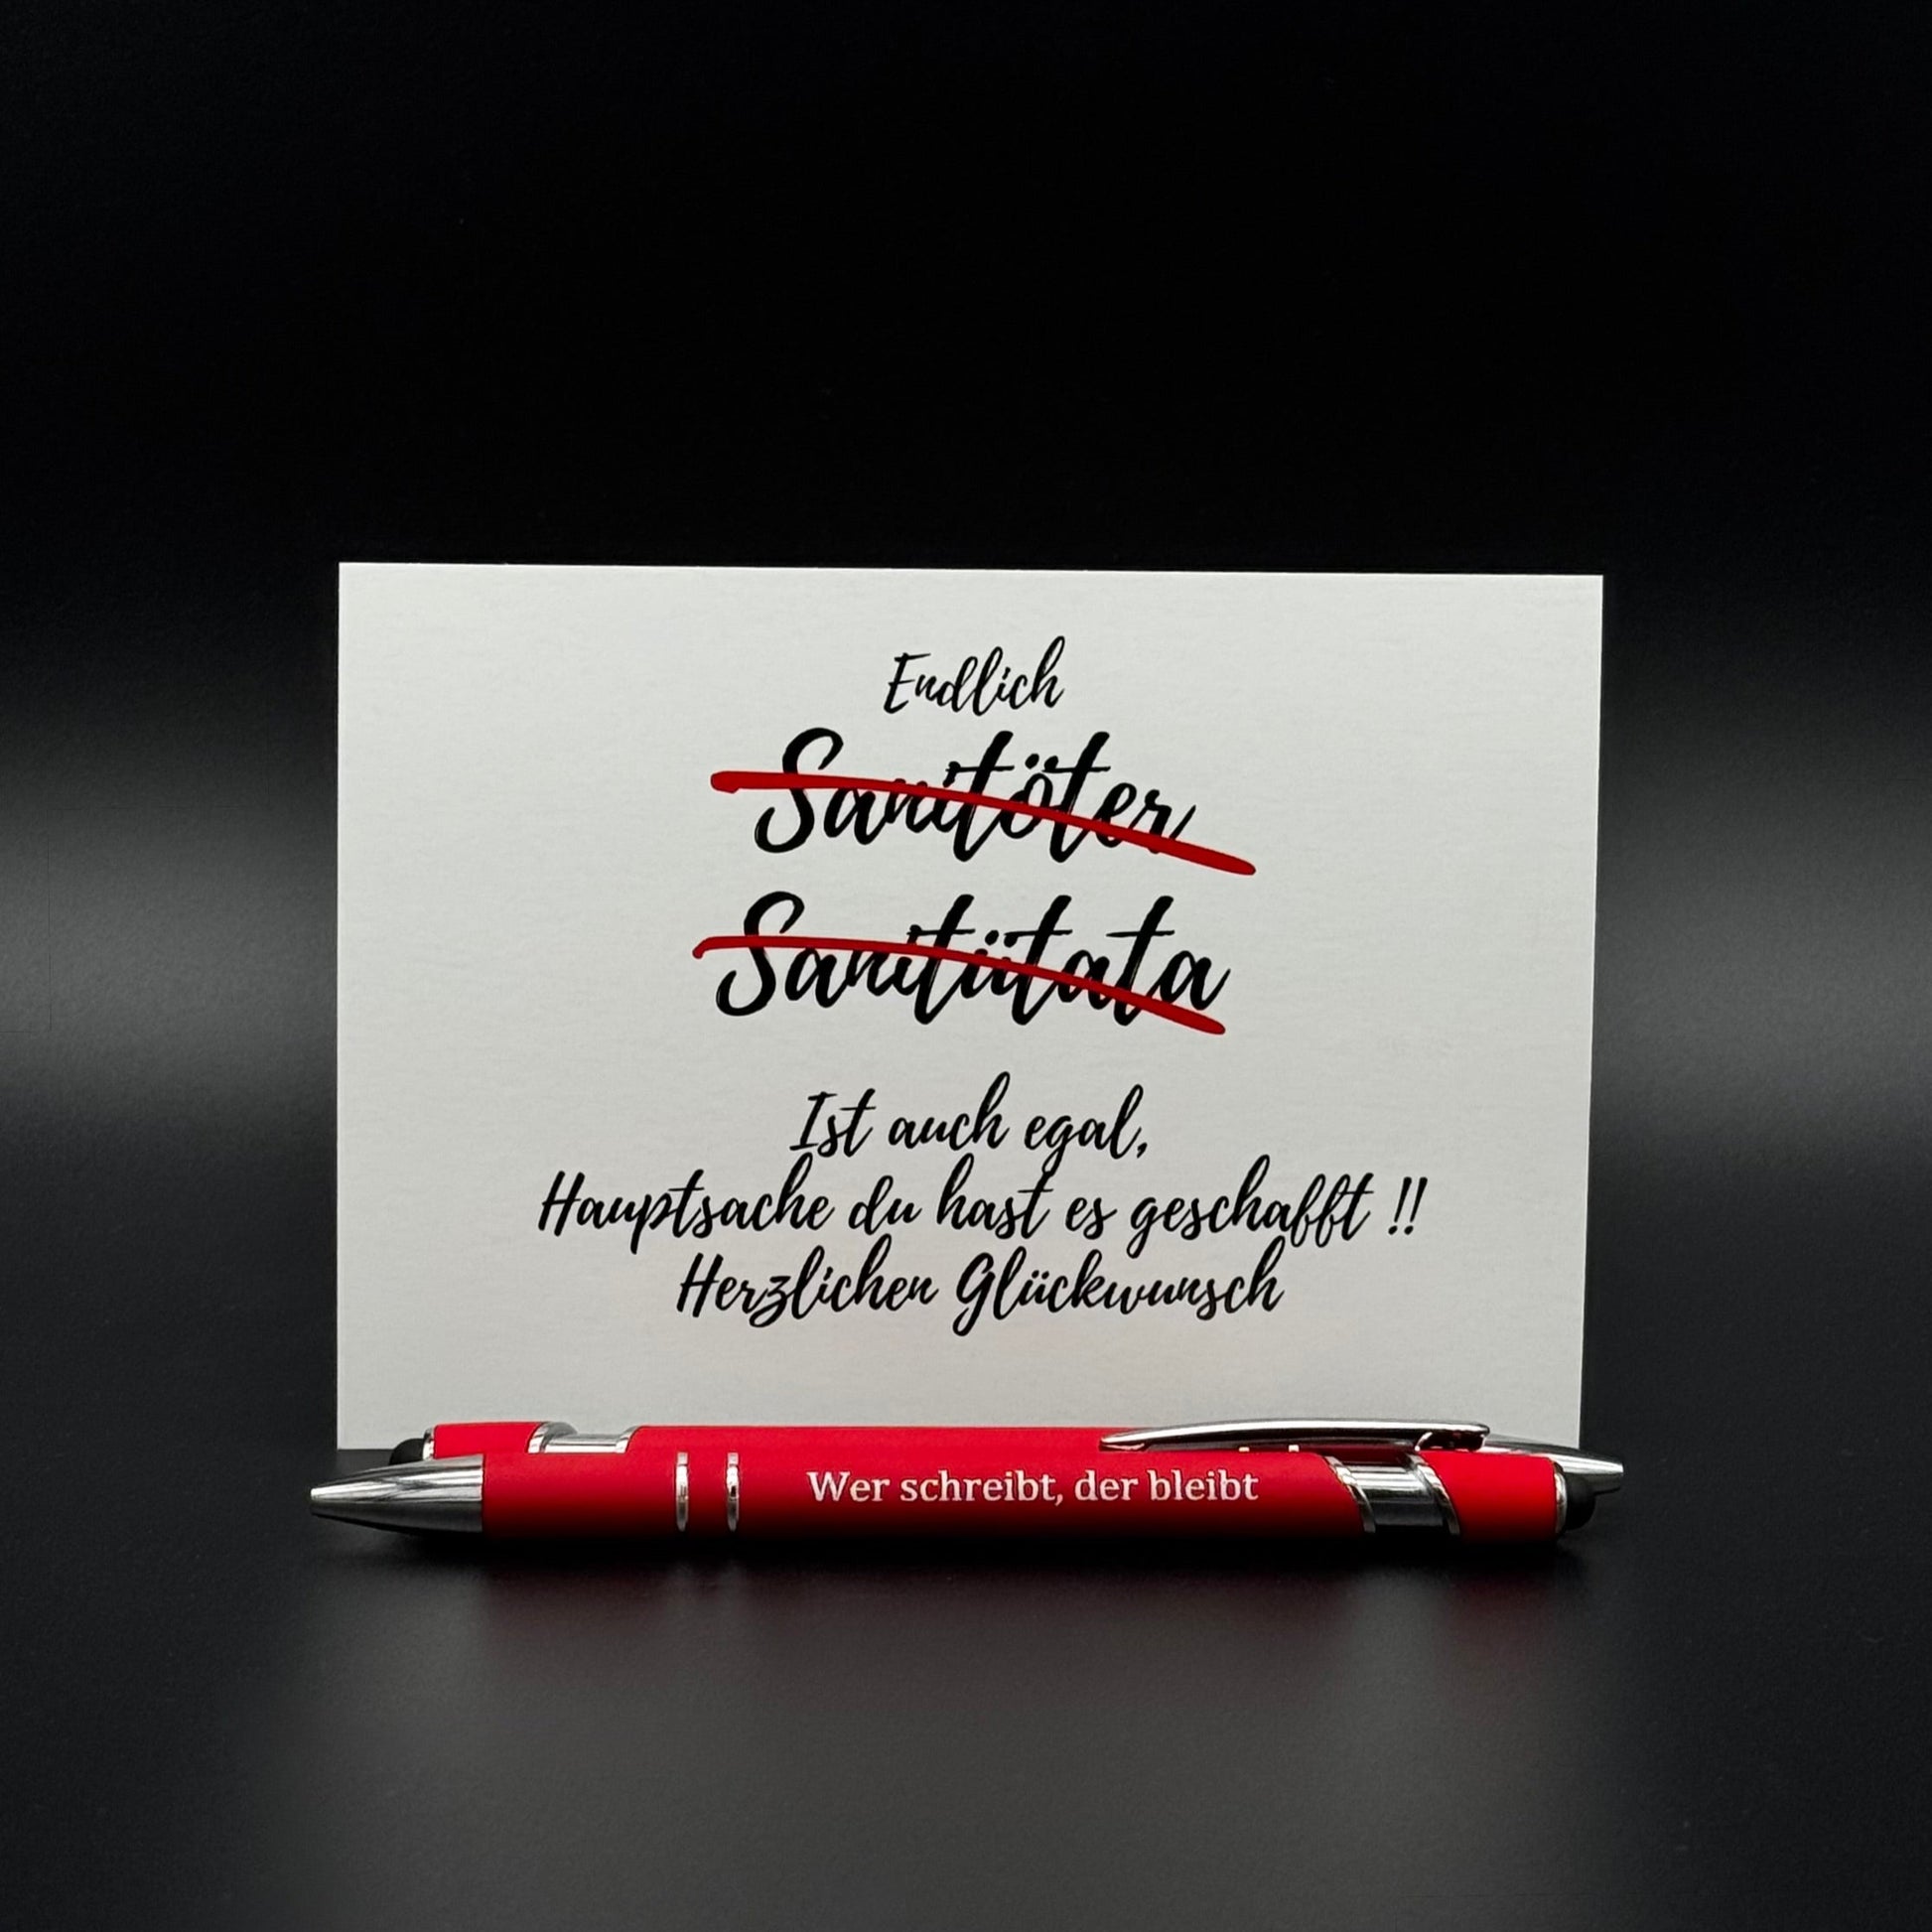 Endlich
Sanitöter
Sanitütata
Ist auch egal,
Hauptsache du hast es geschafft !!
Herzlichen Glückwunsch
Wer schreibt, der bleibt